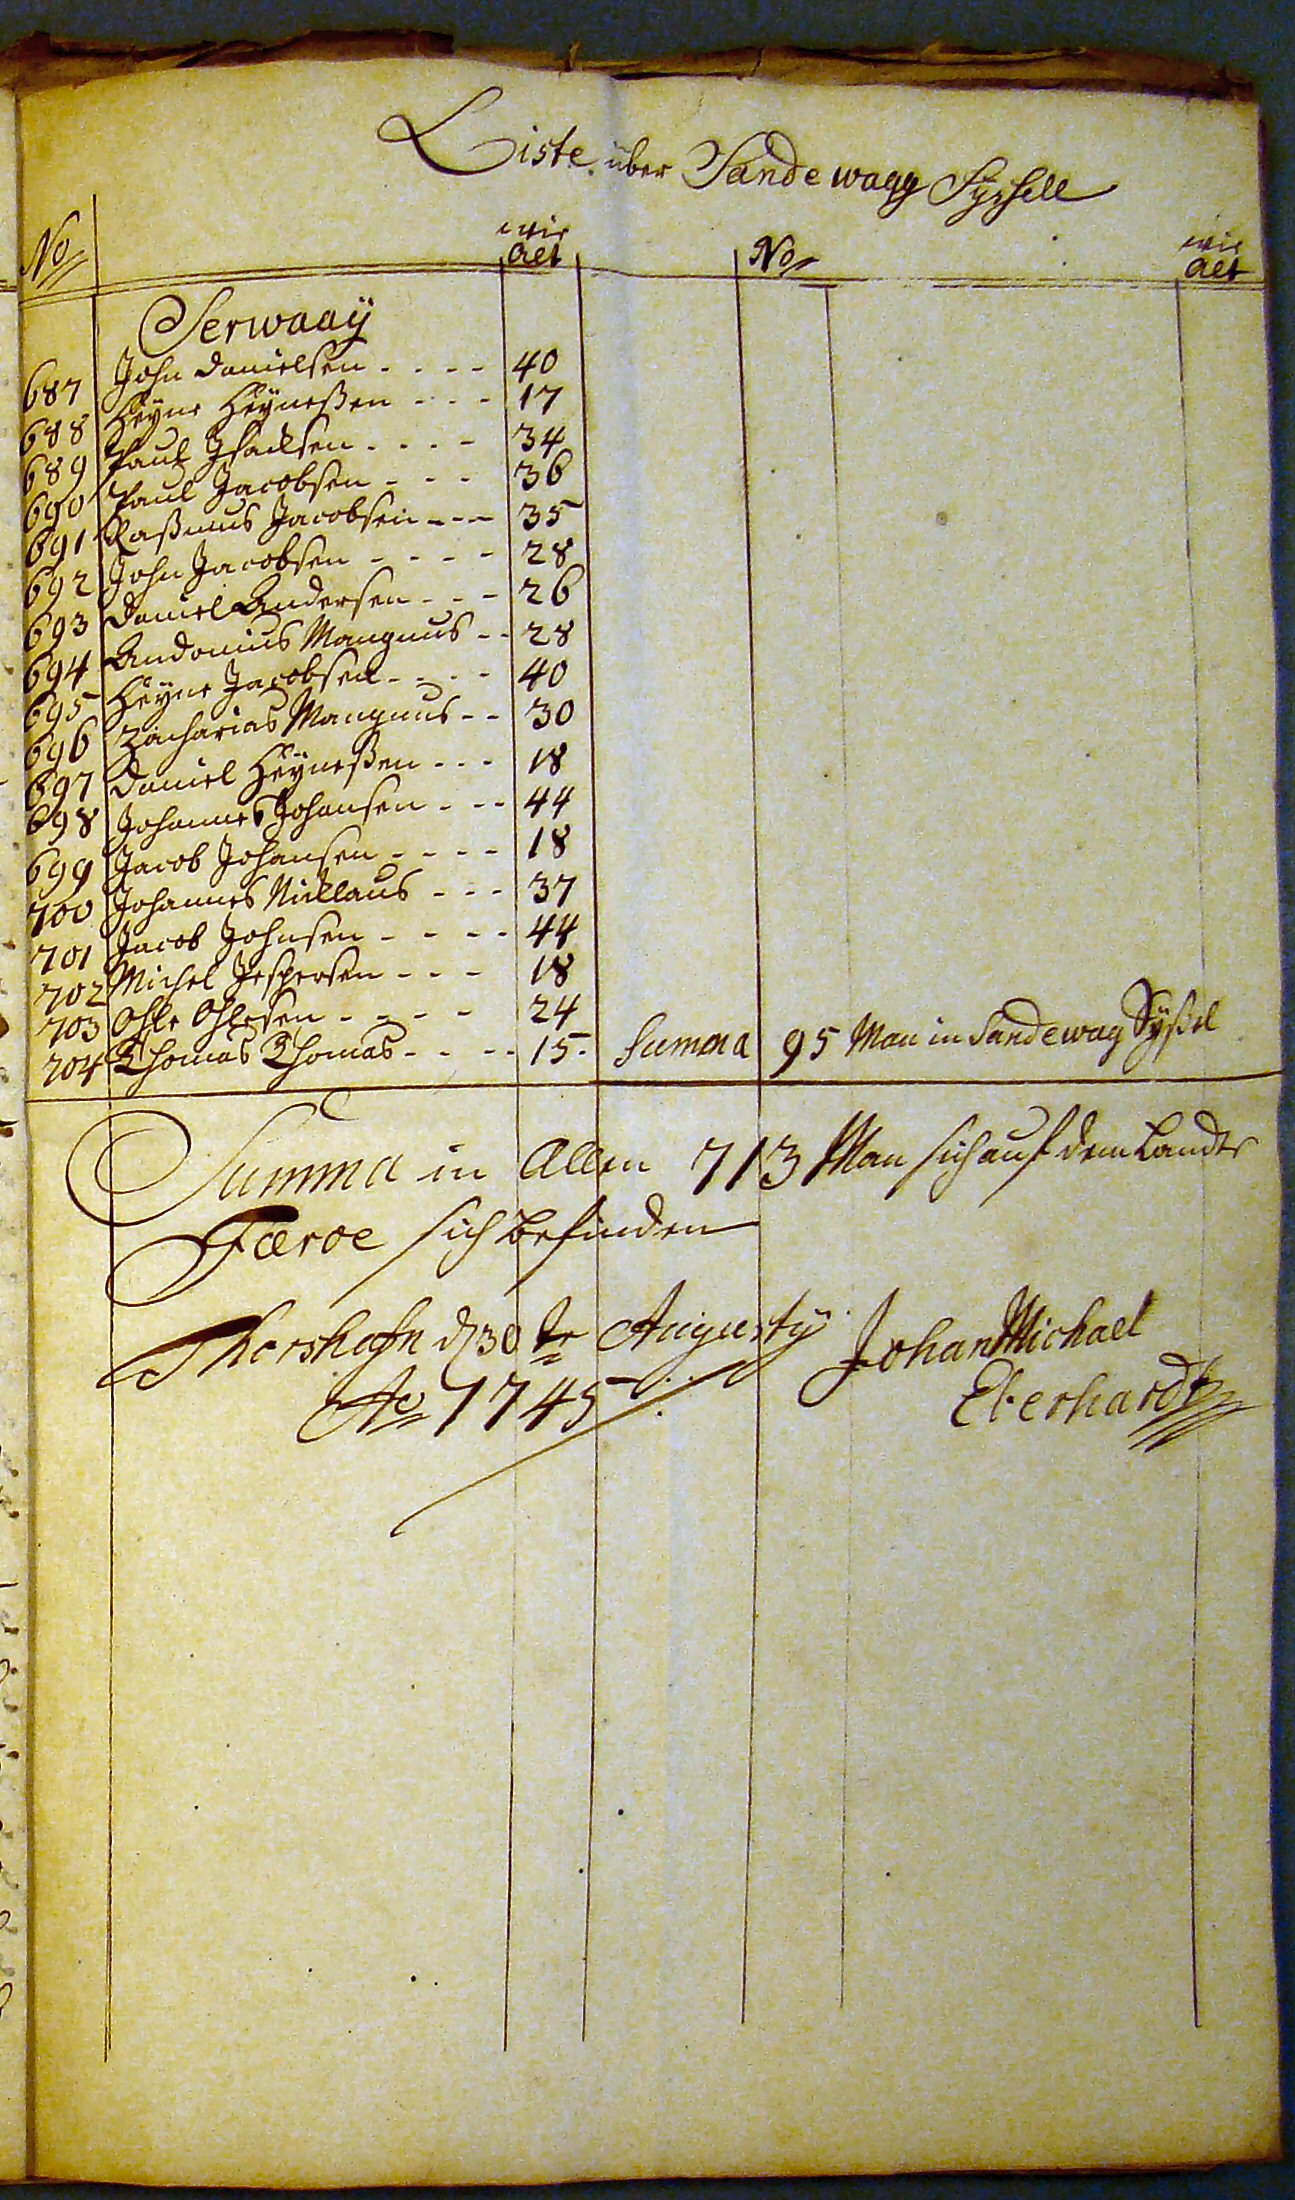 Liste über Sandewagg Syssell
No wie Alt No wie Alt
Serwaaÿ
687 John Danielsen - - - - 40
688 Heÿne Heÿneßen - - - 17
689 Paul Jsacksen - - - - 34
690 Paul Jacobsen - - - 36
691 Raßmus Jacobsen - - - 35
692 John Jacobsen - - - - 28
693 Daniel Andersen - - - 26
694 Andonius Mangnus - - 28
695 Heÿne Jacobsen - - - - 40
696 Zacharias Mangnus - - 30
697 Daniel Heÿneßen - - - 18
698 Johannes Johansen - - - 44
699 Jacob Johansen - - - - 18
700 Johannes Nicklaus - - - 37
701 Jacob Johnsen - - - - 44
702 Michel Jespersen - - - 18
703 Ohle Ohlesen - - - - 24
704 Thomas Thomas - - - - 15. Summa 95 Man in Sandewag Sÿßel
Summa in Allen 713 Man sich auf dem Lande
Færoe sich befinden
Thorshafn d 30 te Augustÿ Johan Michael
Ao 1745 Eberhardt